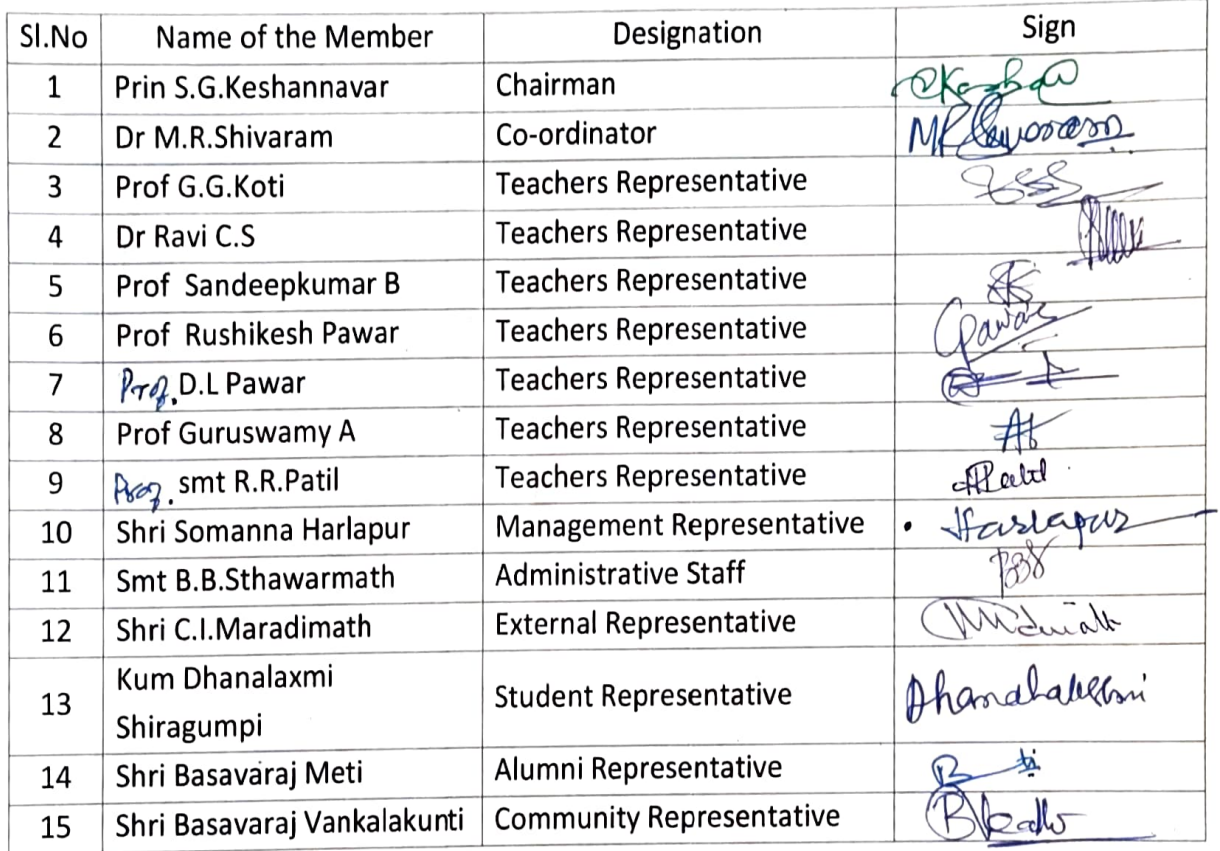 Sl.No Name of the Member Designation Sign
1 Prin S.G.Keshannavar Chairman
2 Dr M.R.Shivaram Co-ordinator
3 Prof G.G.Koti Teachers Representative
4 Dr Ravi C.S Teachers Representative
5 Prof Sandeepkumar B Teachers Representative
6 Prof Rushikesh Pawar Teachers Representative Pawar
7 Prof. D.L Pawar Teachers Representative
8 Prof Guruswamy A Teachers Representative
9 Prof. smt R.R.Patil Teachers Representative
10 Shri Somanna Harlapur Management Representative Harlapur
11 Smt B.B.Sthawarmath Administrative Staff
12 Shri C.I.Maradimath External Representative
13 Kum Dhanalaxmi Student Representative
Shiragumpi
14 Shri Basavaraj Meti Alumni Representative
15 Shri Basavaraj Vankalakunti Community Representative